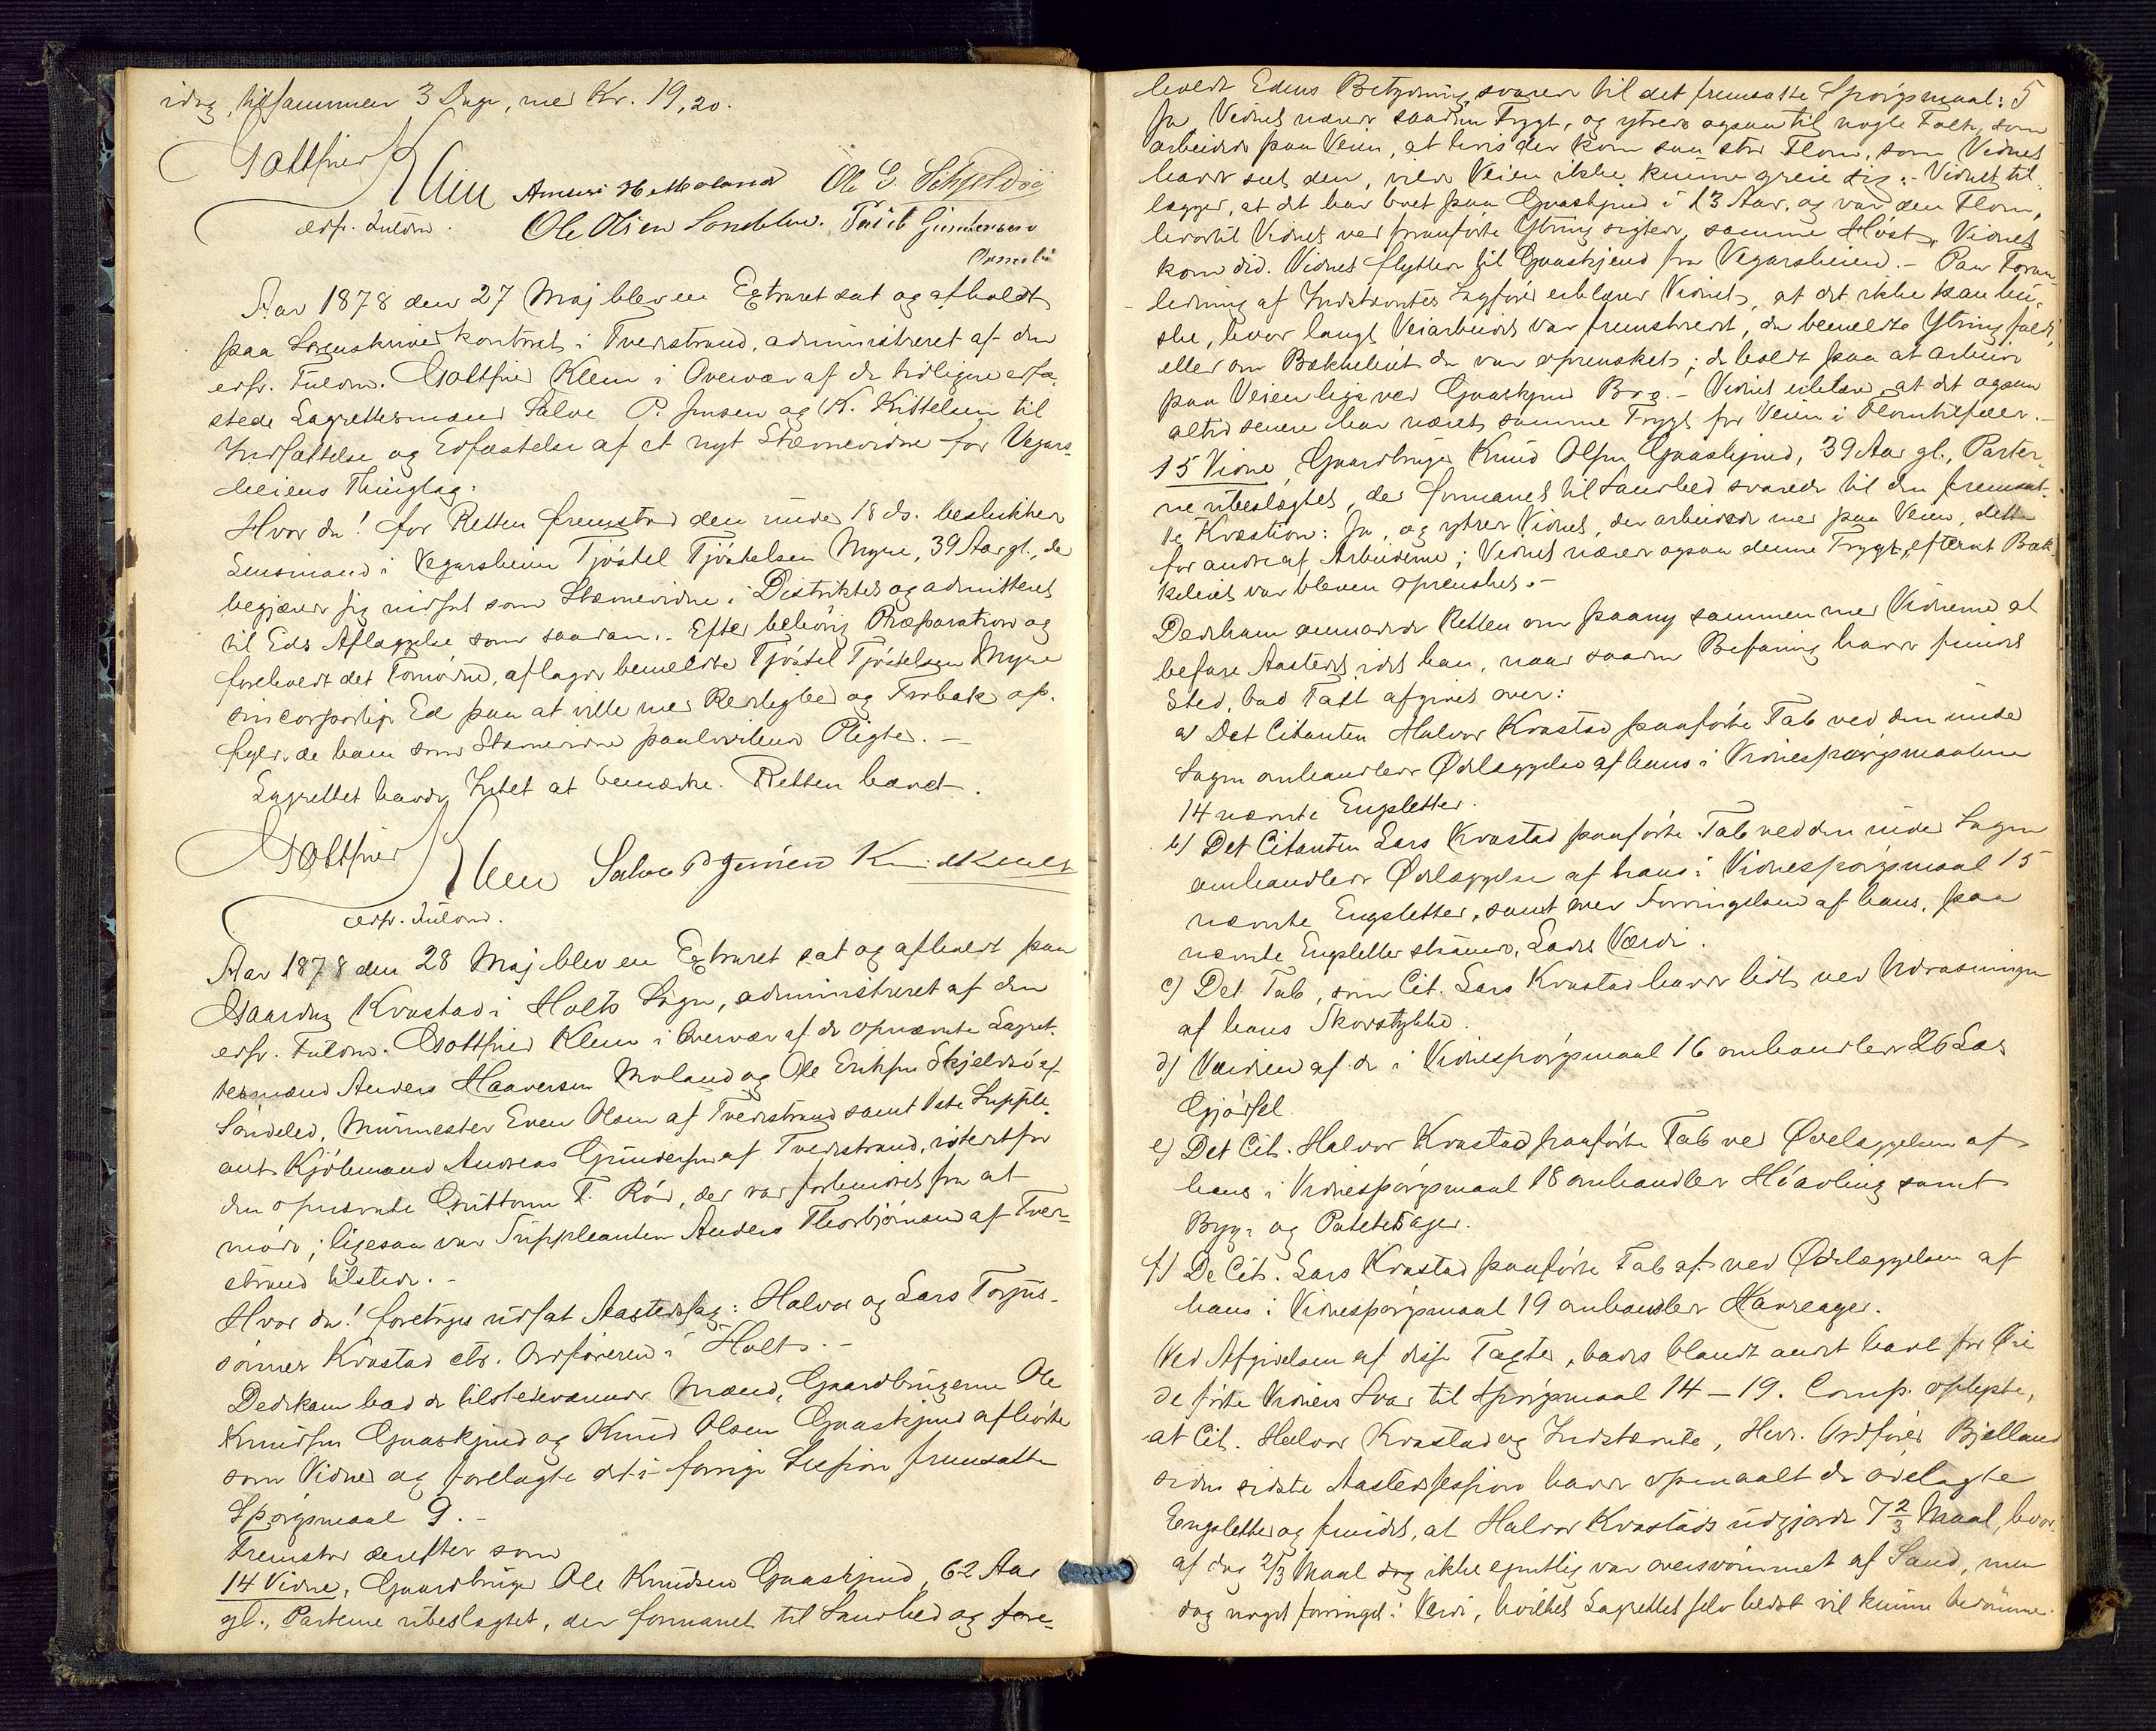 idag, tilsammen 3 Dage, med Kr. 19,20.
Gottfried Klem
Anders H Moland Ole E. Schjeldsö
edsv. Fuldm. Ole Olsen Songelev.
Aar 1878 den 27 Maj blev en Extraret sat og afholdt
paa Sorenskriverkontoret i Tvedestrand, administreret af den
edsv. Fuldm. Gottfried Klem i Overvær af de tidligere edfæ-
stede Lagrettesmænd Salve P. Jensen og K. Kittelsen til
Indsættelse og Edfæstelse af et nyt Stævnevidne for Vegars-
heiens Thinglag.
Hvorda! for Retten fremstod den under 18 ds. beskikkede
Lensmand i Vegarsheien Tjöstel Tjöstelsen Myre, 39 Aar gl., der
begjærer sig indsat som Stævnevidne i Distriktet og admitteret
til Eds Aflæggelse som saadan. Efter behörig Præparation og
foreholdt det Fornödne, aflagde bemeldte Tjöstel Tjöstelsen Myre
sin corporlige Ed paa at ville med Redelighed og Troskab op-
fylde de ham som Stævnevidne paahvilende Pligter. —
Lagrettet havde Intet at bemærke. Retten hævet.
Gottfried Klem Salve P Jensen K Kittelsen
edsv. Fuldm.
Aar 1878 den 28 Maj blev en Extraret sat og afholdt paa
Gaarden Kvastad i Holts Sogn, administreret af den
edsv. Fuldm. Gottfried Klem i Overvær af de opnævnte Lagret-
tesmænd Anders Haaversen Moland og Ole Eriksen Skjeldsö af
Söndeled, Murmester Even Olsen af Tvedestrand samt 1ste Supple-
ant Kjöbmand Andreas Gundersen af Tvedestrand, istedetfor
den opnævnte Guttorm T. Röd, der var forhindret fra at
möde; ligesaa var Suppleanten Anders Thorbjörnsen af Tvede-
strand tilstede. -
Hvorda! foretoges udsat Aastedssag: Halvor og Lars Torjus-
sönner Kvastad ctr. Ordföreren i Holt. -
Dedekam bad de tilstedeværende Mænd, Gaardbrugerne Ole
Knudsen Gaaskjend og Knud Olsen Gaaskjend afhörte
som Vidner og forelagte det i forrige Session fremsatte
Spörgsmaal 9. -
Fremstod derefter som
14 Vidne, Gaardbruger Ole Knudsen Gaaskjend, 62 Aar
gl., Parterne ubeslægtet, der formanet til Sandhed og fore-
holdt Edens Betydning, svarer til det fremsatte Spörgsmaal: 5
Ja Vidnet nærede saadan Frygt, og ytrede ogsaa til nogle Folk, som
arbeidede paa Veien, at hvis der kom saa stor Flom, som Vidnet
havde seet den, vilde Veien ikke kunne greie sig. - Vidnet til-
lægger, at det har boet paa Gaaskjend i 13 Aar, og var den Flom,
hvortil Vidnet ved fremförte Ytring sigtede, samme Höst, Vidnet
kom did. Vidnet flyttede til Gaaskjend fra Vegarsheien. - Paa Foran-
ledning af Indstævntes Sagförer erklærer Vidnet, at det ikke kan hu-
ske, hvor langt Veiarbeidet var fremskredet, da bemeldte Ytring faldt,
eller om Bækkeleiet da var oprensket; de holdt paa at arbeide
paa Veien lige ved Gaaskjend Bro. - Vidnet erklærer, at det ogsaa
altid senere har næret samme Frygt for Veien i Flomtilfælde. -
15 Vidne, Gaardbruger Knud Olsen Gaaskjend, 39 Aar gl., Parter-
ne ubeslægtet, der formanet til Sandhed svarede til den fremsat-
te Kvæstion: Ja, og ytrede Vidnet, der arbeidede med paa Veien, dette
for andre af Arbeiderne; Vidnet nærer ogsaa denne Frygt, efterat Bæk-
keleiet var bleven oprensket. -
Dedekam anmodede Retten om paany sammen med Vidnerne at
befare Aastedet, idet han, naar saadan Befaring havde fundet
Sted, bad Taxt afgivet over:
a) Det Citanten Halvor Kvastad paaförte Tab ved den under
Sagen omhandlede Ödelæggelse af hans i Vidnespörgsmaalene
14 nævnte Engsletter.
b) Det Citanten Lars Kvastad paaförte Tab ved den under Sagen
omhandlede Ödelæggelse af hans i Vidnespörgsmaal 15
nævnte Engsletter, samt over Forringelsen af hans, paa
nævnte Engsletter staaende, Lades Værdi.
c) Det Tab, som Cit. Lars Kvastad havde lidt ved Udrasningen
af hans Skovstykke.
d) Værdien af de i Vidnespörgsmaal 16 omhandlede 26 Læs
Gjödsel.
e) Det Cit. Halvor Kvastad paaförte Tab ved Ödelæggelsen af
hans i Vidnespörgsmaal 18 omhandlede Höavling samt
Byg- og Potetesager.
f) De Cit. Lars Kvastad paaförte Tab af ved Ödelæggelsen af
hans i Vidnespörgsmaal 19 omhandlede Havreager.
Ved Afgivelsen af disse Taxter, bades blandt andet havt for Öie
de förte Vidners Svar til Spörgsmaal 14 - 19. Comp. oplyste,
at Cit. Halvor Kvastad og Indstævnte, Hedr. Ordförer Bjelland
siden sidste Aastedssession havde opmaalt de ödelagte
Engsletter og fundet, at Halvor Kvastads udgjorde 7 2/3 Maal, hvor-
af dog 2/3 Maal dog ikke egentlig var oversvömmet af Sand, men
dog noget forringet i Værdi, hvilket Lagrettet selv bedst vil kunne bedömme.